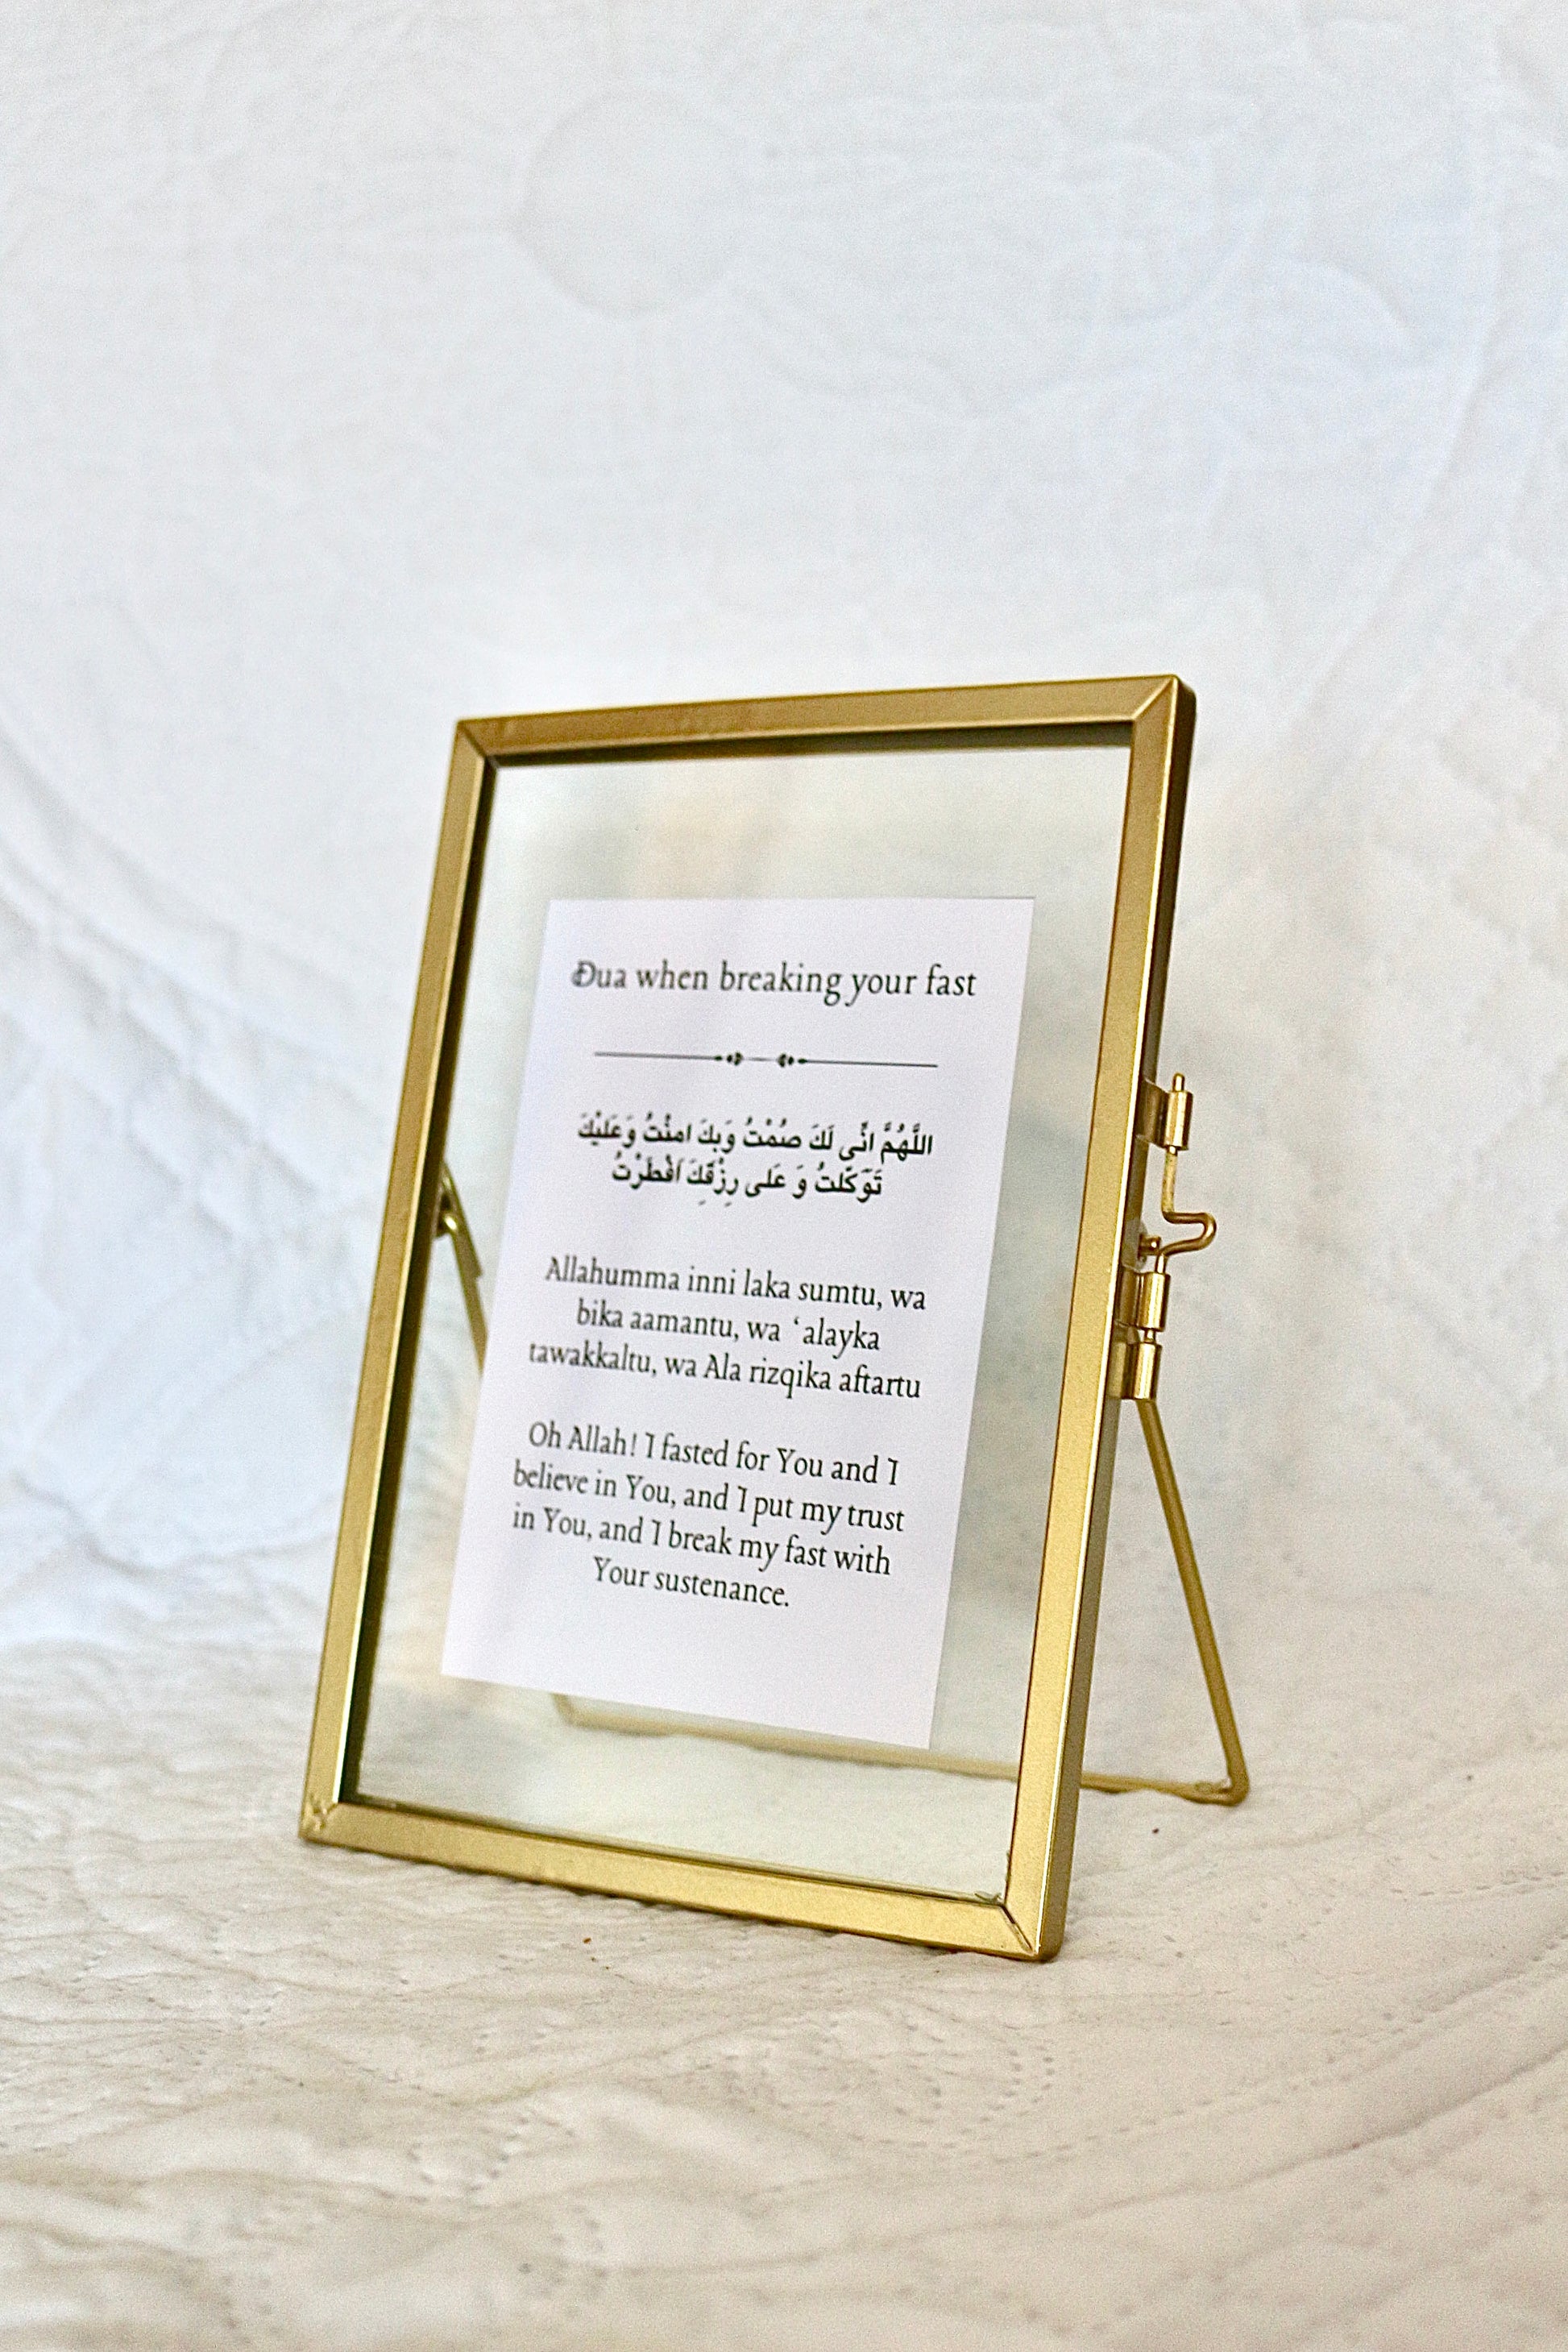 Dua when breaking your fast
اللَّهُمَّ انِّى لَكَ صُمْتُ وَبِكَ امنْتُ وَعَلَيْكَ
تَوَكَّلتُ وَ عَلى رِزْقِكَ اَفْطَرْتُ
Allahumma inni laka sumtu, wa
bika aamantu, wa ‘alayka
tawakkaltu, wa Ala rizqika aftartu
Oh Allah! I fasted for You and I
believe in You, and I put my trust
in You, and I break my fast with
Your sustenance.